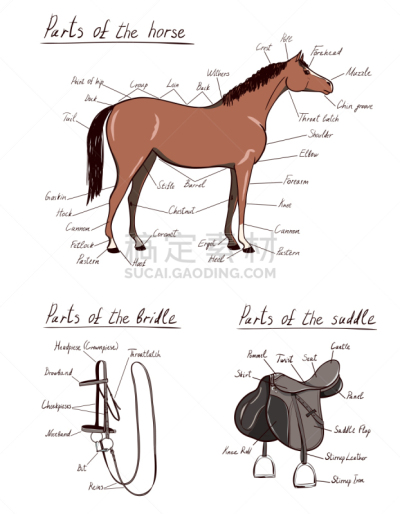 Parts of the horse
Poll
Crest
Forehead
Withers
Back
Loin
Croup
Point of hip
Dock
Tail
Muzzle
Chin groove
Throat latch
Shoulder
Elbow
Forearm
Knee
Cannon
Pastern
Stifle
Barrel
Chestnut
Ergot
Hoof
Gaskin
Hock
Cannon
Fetlock
Pastern
Coronet
Hoof
搞定素材
SUCAI.GAODING.COM
Parts of the Bridle
Headpiece (Crownpiece)
Throatlatch
Browband
Cheekpieces
Noseband
Bit
Reins
Parts of the saddle
Pommel
Twist
Seat
Cantle
Skirt
Panel
Saddle Flap
Knee Roll
Stirrup Leather
Stirrup Iron